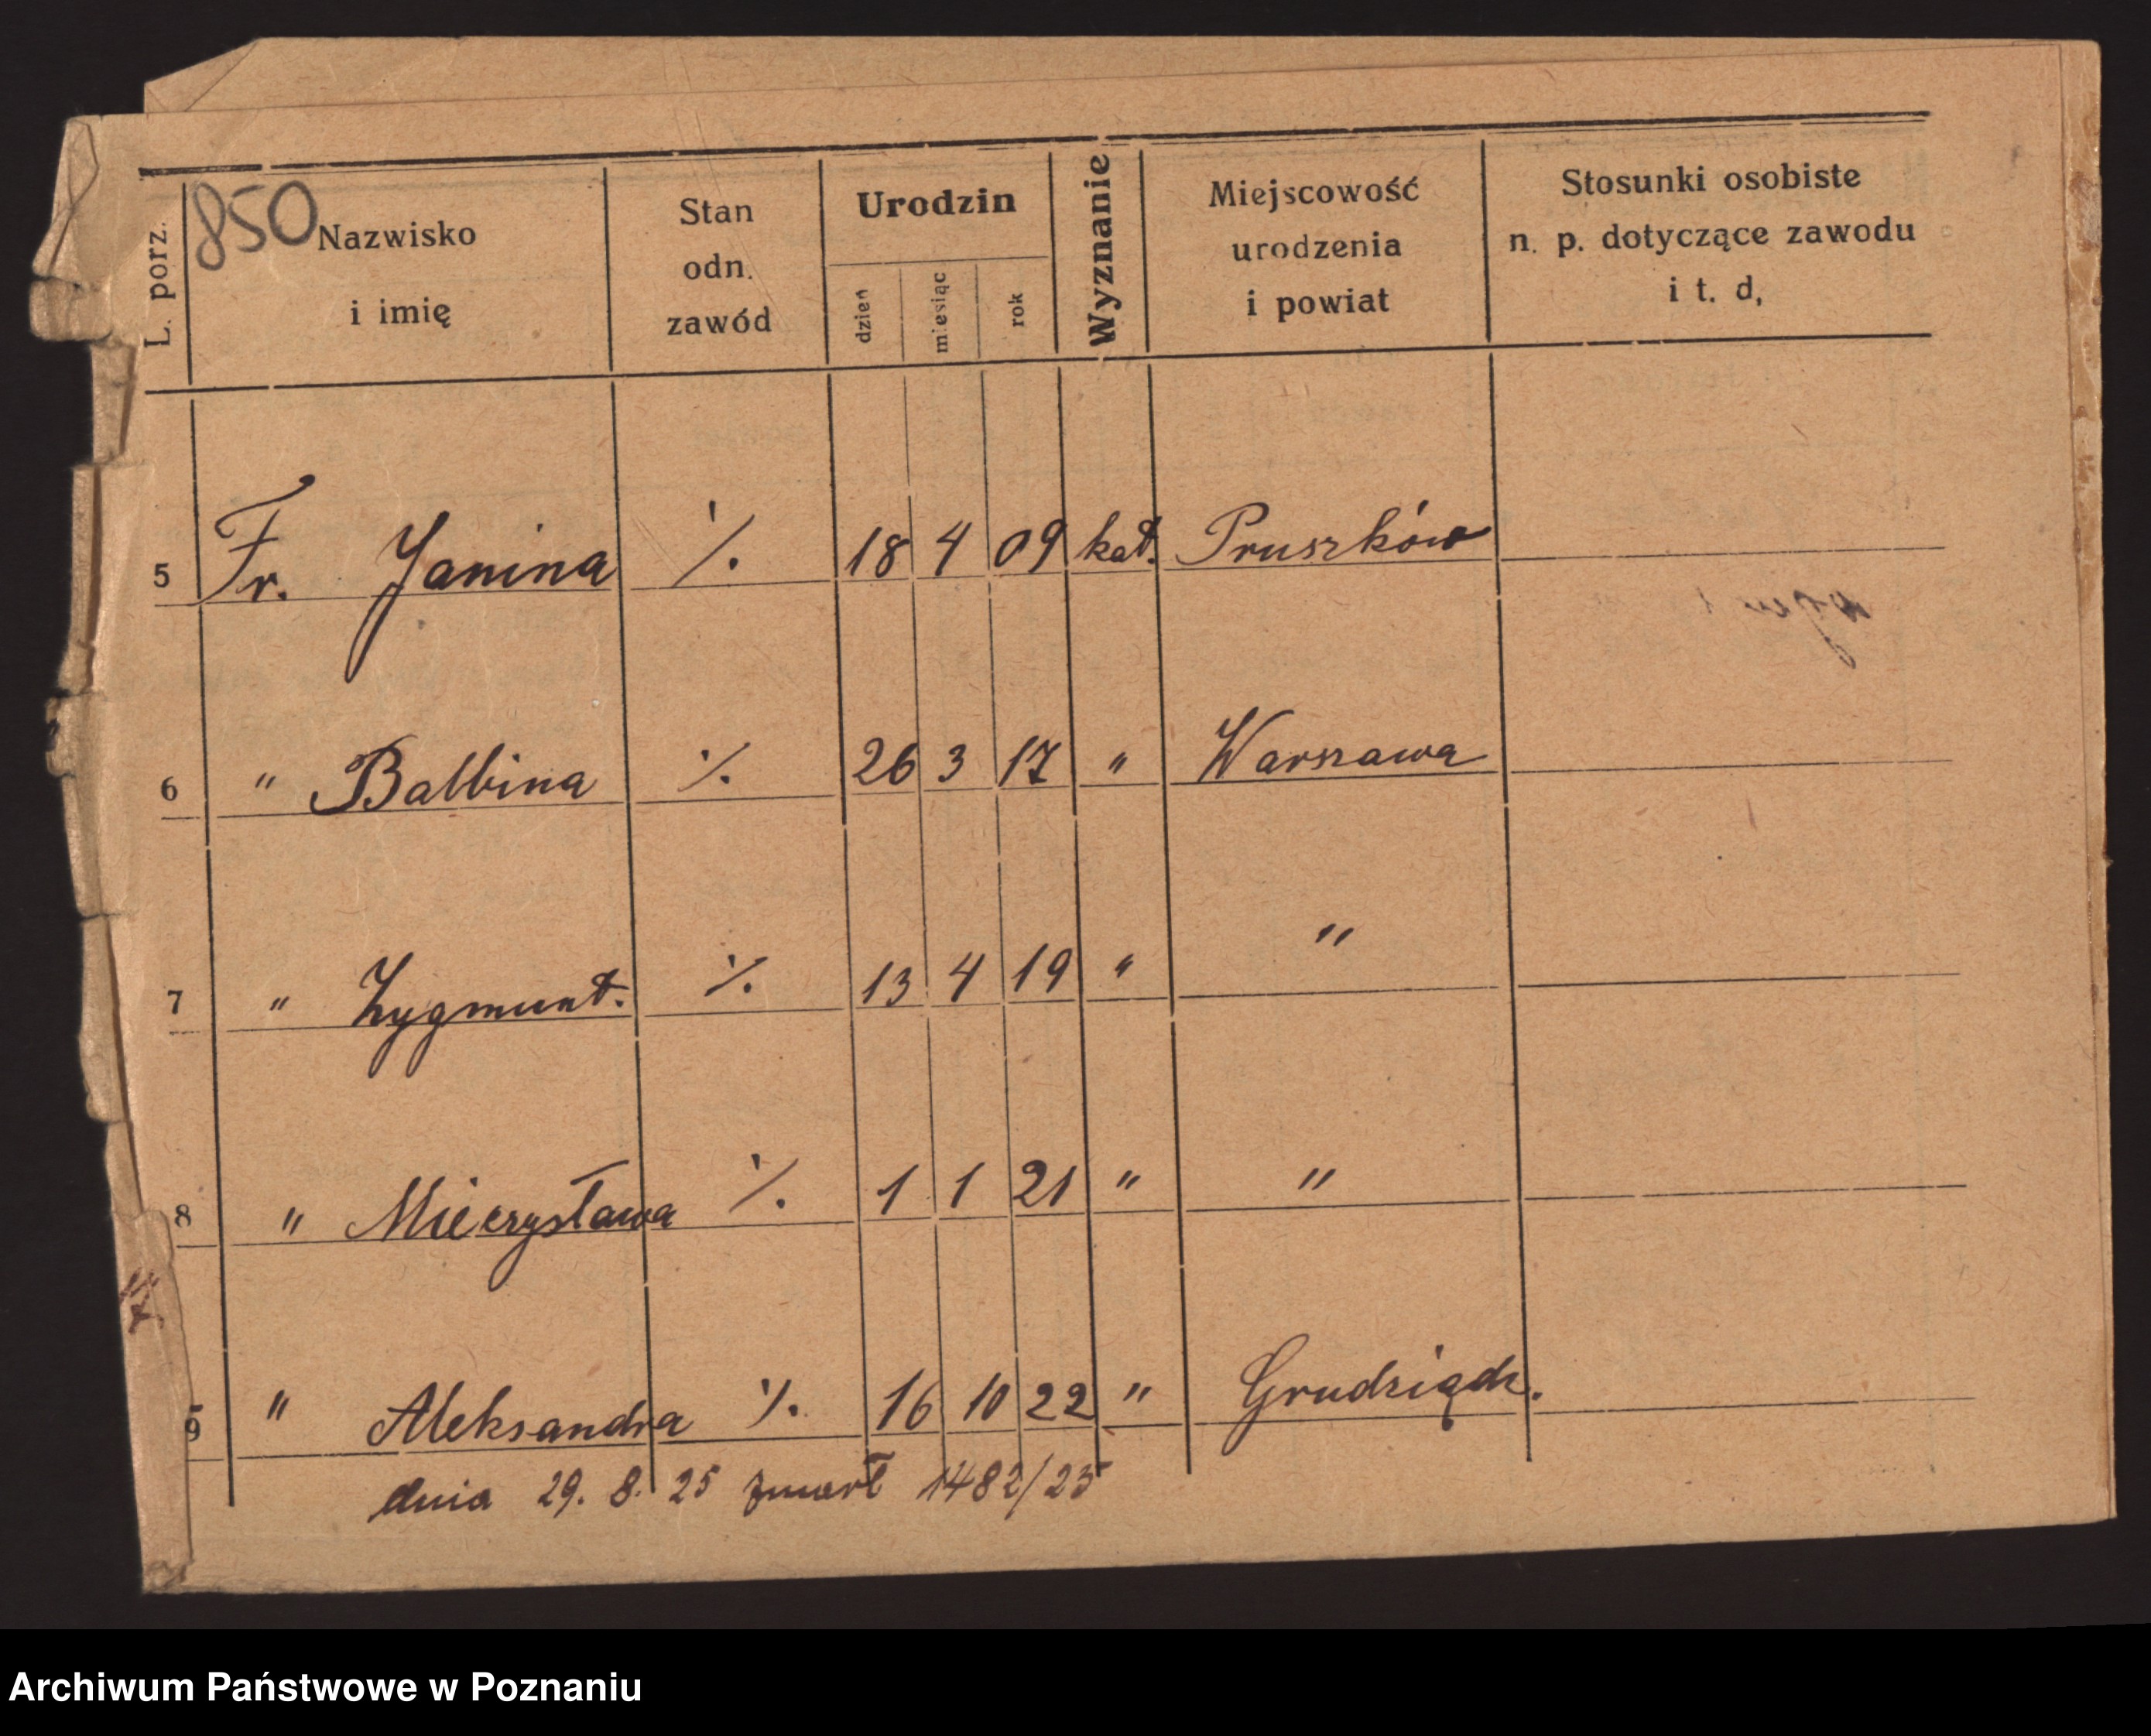 850
L. porz.
Nazwisko
i imię
Stan
odn.
zawód
Urodzin
dzień
miesiąc
rok
Wyznanie
Miejscowość
urodzenia
i powiat
Stosunki osobiste
n. p. dotyczące zawodu
i t. d,
5 Fr. Janina ./. 18 4 09 kat. Pruszków
6 " Balbina ./. 26 3 17 " Warszawa
7 " Zygmunt. ./. 13 4 19 " "
8 " Mieczysława ./. 1 1 21 " "
9 " Aleksandra ./. 16 10 22 " Grudziądz.
dnia 29. 8. 25 zmarł 1482/25
Archiwum Państwowe w Poznaniu